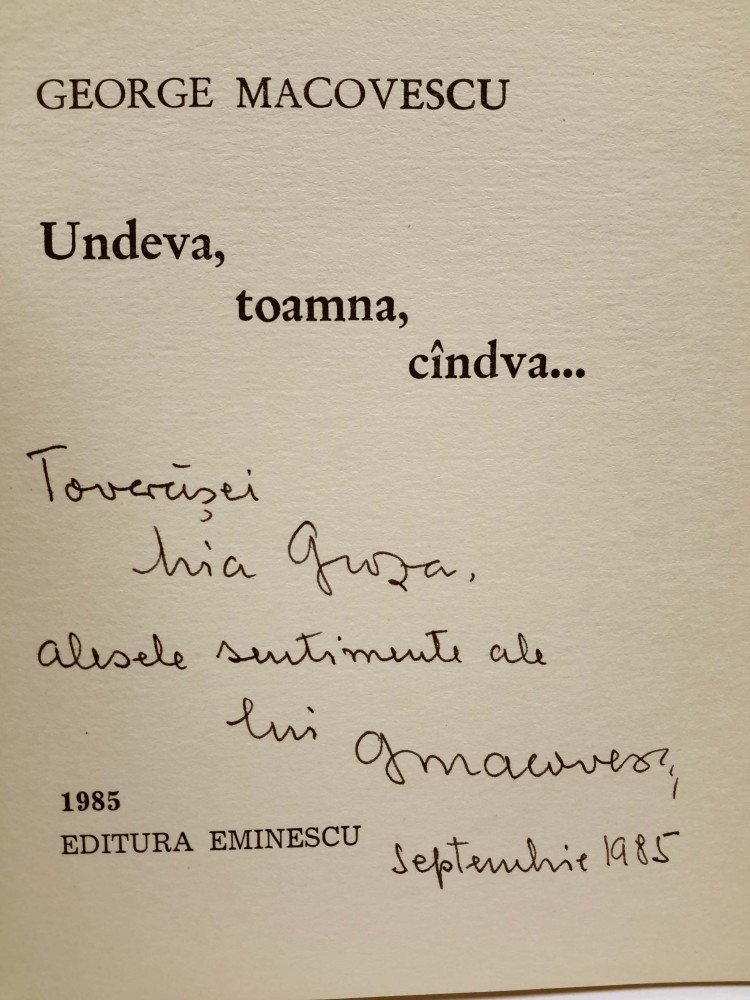 GEORGE MACOVESCU
Undeva,
toamna,
cîndva...
Tovarășei
Mia Groza,
alesele sentimente ale
lui GMacovescu
1985
EDITURA EMINESCU
septembrie 1985